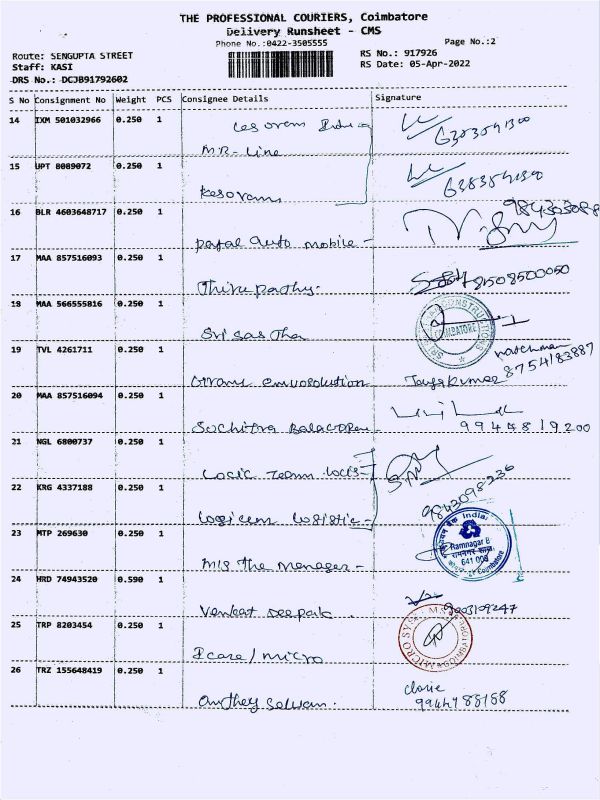 THE PROFESSIONAL COURIERS, Coimbatore
Delivery Runsheet - CMS
Phone No.:0422-3505555
Page No.:2
Route: SENGUPTA STREET
Staff: KASI
DRS No.: DCJB91792602
RS No.: 917926
RS Date: 05-Apr-2022
S No Consignment No Weight PCS Consignee Details Signature
14 IXM 501032966 0.250 1
6383591300
MR-Line
15 UPT 8089072 0.250 1
6383591300
Kesoram
16 BLR 4603648717 0.250 1
Payal Auto mobile -
17 MAA 857516093 0.250 1
Thirupathy.
8508500050
18 MAA 566555816 0.250 1
Sri Sastha
COIMBATORE
19 TVL 4261711 0.250 1
watchman
Jayakumar 8754183887
20 MAA 857516094 0.250 1
Suchitra
9944819200
21 NGL 6800737 0.250 1
Logic Team
22 KRG 4337188 0.250 1
9843098236
Logicem Logistic
23 MTP 269630 0.250 1
Ramnagar B
641 009
Coimbatore
M/s The Manager -
24 HRD 74943520 0.590 1
Venkat Deepak.
9003109247
25 TRP 8203454 0.250 1
MICRO SYSTEMS
COIMBATORE
Icare/micro
26 TRZ 155648419 0.250 1
9944788168
Selvan.